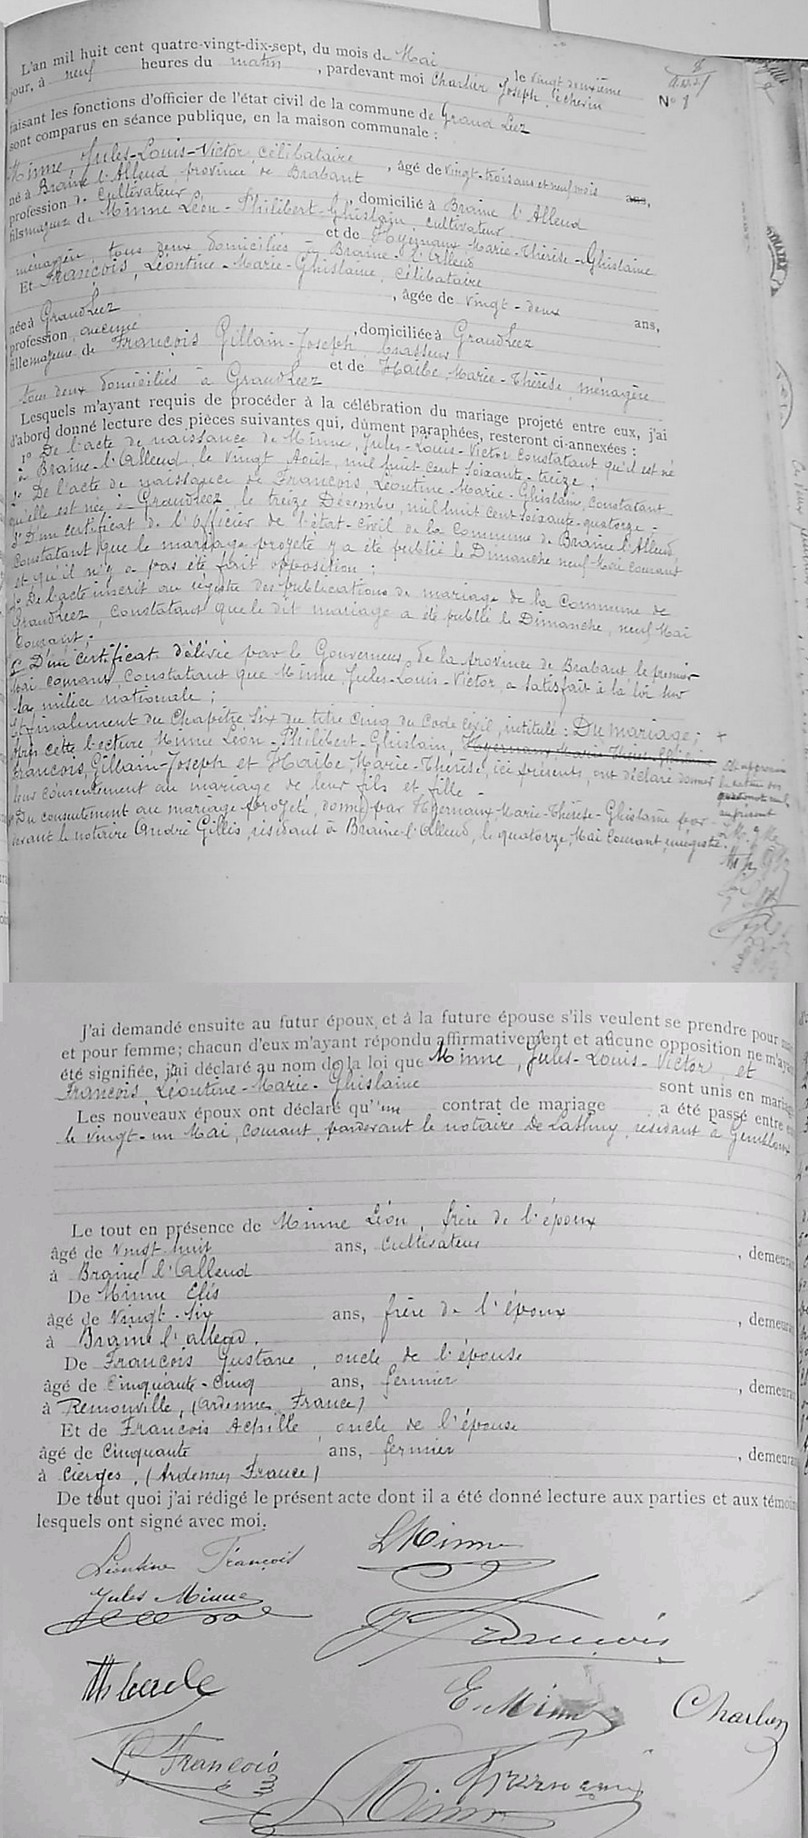 L'an mil huit cent quatre-vingt-dix-sept, du mois de Mai, le vingt deuxième
jour, à neuf heures du matin, pardevant moi Charlier Joseph, échevin
N° 1
faisant les fonctions d'officier de l'état civil de la commune de Grand Leez
sont comparus en séance publique, en la maison communale :
Minne, Jules-Louis-Victor, célibataire, âgé de vingt-trois ans et neuf mois ans,
né à Braine l'Alleud, province de Brabant
profession de Cultivateur, domicilié à Braine l'Alleud
fils majeur de Minne Léon-Philibert-Ghislain, cultivateur
et de Heyernaux Marie-Thérèse-Ghislaine
ménagère, tous deux domiciliés à Braine-l'Alleud
Et François, Léontine-Marie-Ghislaine, célibataire
, âgée de vingt-deux ans,
née à GrandLeez
profession, aucune, domiciliée à GrandLeez
fille majeure de François Gillain-Joseph, brasseur
et de Haibe, Marie-Thérèse, ménagère
tous deux domiciliés à GrandLeez
Lesquels m'ayant requis de procéder à la célébration du mariage projeté entre eux, j'ai
d'abord donné lecture des pièces suivantes qui, dûment paraphées, resteront ci-annexées :
1° De l'acte de naissance de Minne, Jules-Louis-Victor constatant qu'il est né
à Braine-l'Alleud, le vingt Août, mil huit cent soixante-treize ;
2° De l'acte de naissance de François Léontine-Marie-Ghislain, constatant
qu'elle est née à GrandLeez le treize Décembre, mil huit cent soixante-quatorze ;
3° D'un certificat de l'Officier de l'état-civil de la commune de Braine l'Alleud,
constatant que le mariage projeté y a été publié le Dimanche neuf Mai courant
et qu'il n'y a pas été fait opposition ;
4° De l'acte inscrit au registre des publications de mariage de la commune de
GrandLeez, constatant que le dit mariage a été publié le Dimanche, neuf Mai
courant ;
5° D'un certificat délivré par le Gouverneur de la province de Brabant le premier
Mai courant, constatant que Minne, Jules-Louis-Victor, a satisfait à la loi sur
la milice nationale ;
Et finalement du Chapitre Six du titre cinq du Code civil, intitulé : Du mariage ; +
Après cette lecture, Minne Léon-Philibert-Ghislain,
François, Gillain-Joseph et Haibe, Marie-Thérèse, ici présents, ont déclaré donner
leur consentement au mariage de leur fils et fille.
Du consentement au mariage projeté, donné par Heyernaux, Marie-Thérèse-Ghislaine par
devant le notaire André Gillis, résidant à Braine-l'Alleud, le quatorze Mai courant, enregistré.
J'ai demandé ensuite au futur époux et à la future épouse s'ils veulent se prendre pour
et pour femme; chacun d'eux m'ayant répondu affirmativement et aucune opposition ne m'
été signifiée, j'ai déclaré au nom de la loi que Minne, Jules-Louis-Victor, et
François, Léontine-Marie-Ghislaine sont unis en
Les nouveaux époux ont déclaré qu'un contrat de mariage a été passé entre
le vingt-un Mai, courant, pardevant le notaire De Lathuy, résidant à Gembloux
Le tout en présence de Minne Léon, frère de l'époux
âgé de Vingt huit ans, Cultivateur, demeura
à Braine l'Alleud
De Minne Elis
âgé de Vingt-six ans, frère de l'époux, demeura
à Braine l'alleud.
De François Gustave, oncle de l'épouse
âgé de Cinquante-Cinq ans, fermier, demeura
à Remonville, (Ardennes France)
Et de François Achille, oncle de l'épouse
âgé de Cinquante ans, fermier, demeura
à Cierges, (Ardennes France)
De tout quoi j'ai rédigé le présent acte dont il a été donné lecture aux parties et aux témoin
lesquels ont signé avec moi.
Léontine François
L Minne
Jules Minne
François
E. Minne
Charlier
G François
François
L Minne